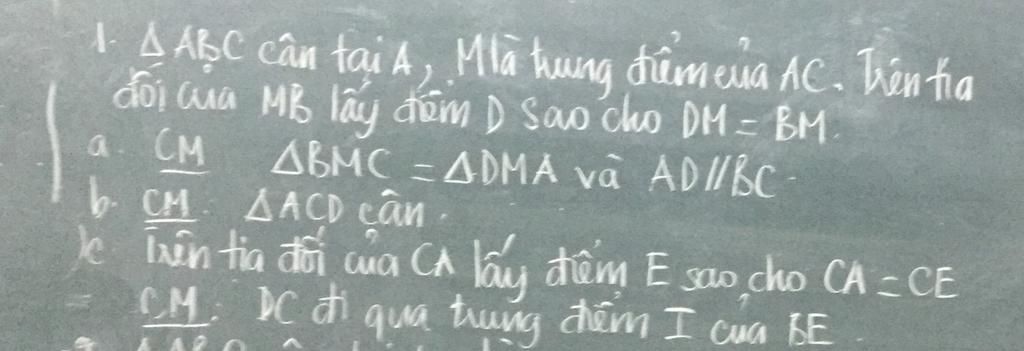 1. Δ ABC cân tại A, M là trung điểm của AC. Trên tia
đối của MB lấy điểm D sao cho DM = BM.
a. CM ΔBMC = ΔDMA và AD//BC.
b. CM. ΔACD cân.
c. Trên tia đối của CA lấy điểm E sao cho CA = CE
CM: DC đi qua trung điểm I của BE.